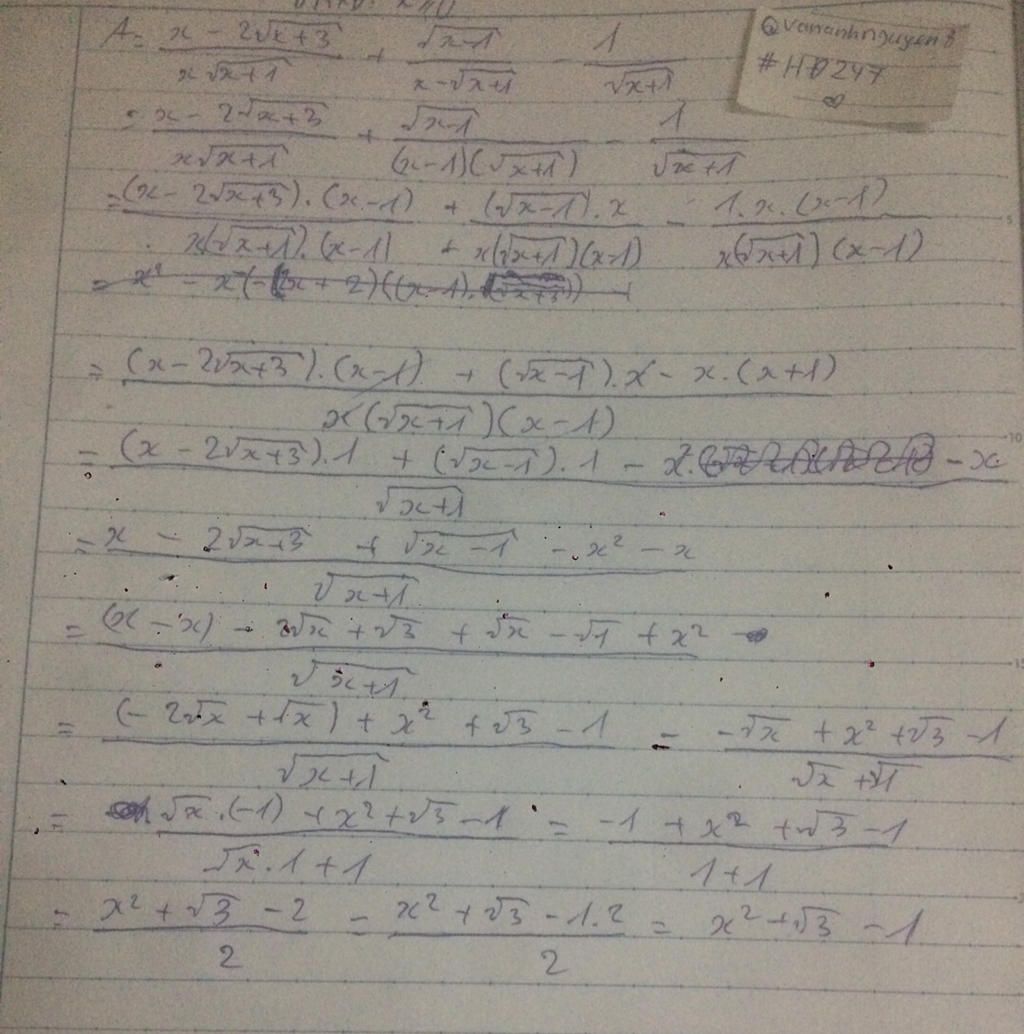 ĐKXĐ: x ≥ 0
A = (x - 2√(x+3))/(x√(x+1)) + √(x-1)/(x-√(x+1)) - 1/√(x+1)
@vananhnguyen8
#HĐ247
∞
= (x - 2√(x+3))/(x√(x+1)) + √(x-1)/((x-1)(√(x+1))) - 1/√(x+1)
= ((x - 2√(x+3)).(x-1))/(x(√(x+1)).(x-1)) + ((√(x-1)).x)/(x(√(x+1))(x-1)) - (1.x.(x-1))/(x(√(x+1))(x-1))
= ((x - 2√(x+3)).(x-1) + (√(x-1)).x - x.(x+1))/(x(√(x+1))(x-1))
= ((x - 2√(x+3)).1 + (√(x-1)).1 - x² - x)/√(x+1)
= (x - 2√(x+3) + √(x-1) - x² - x)/√(x+1)
= ((x - x) - 2√x + √3 + √x - √1 + x²)/√(x+1)
= ((-2√x + √x) + x² + √3 - 1)/√(x+1) = (-√x + x² + √3 - 1)/(√x + √1)
= (√x.(-1) + x² + √3 - 1)/(√x.1 + 1) = (-1 + x² + √3 - 1)/(1 + 1)
= (x² + √3 - 2)/2 = (x² + √3 - 1.2)/2 = x² + √3 - 1